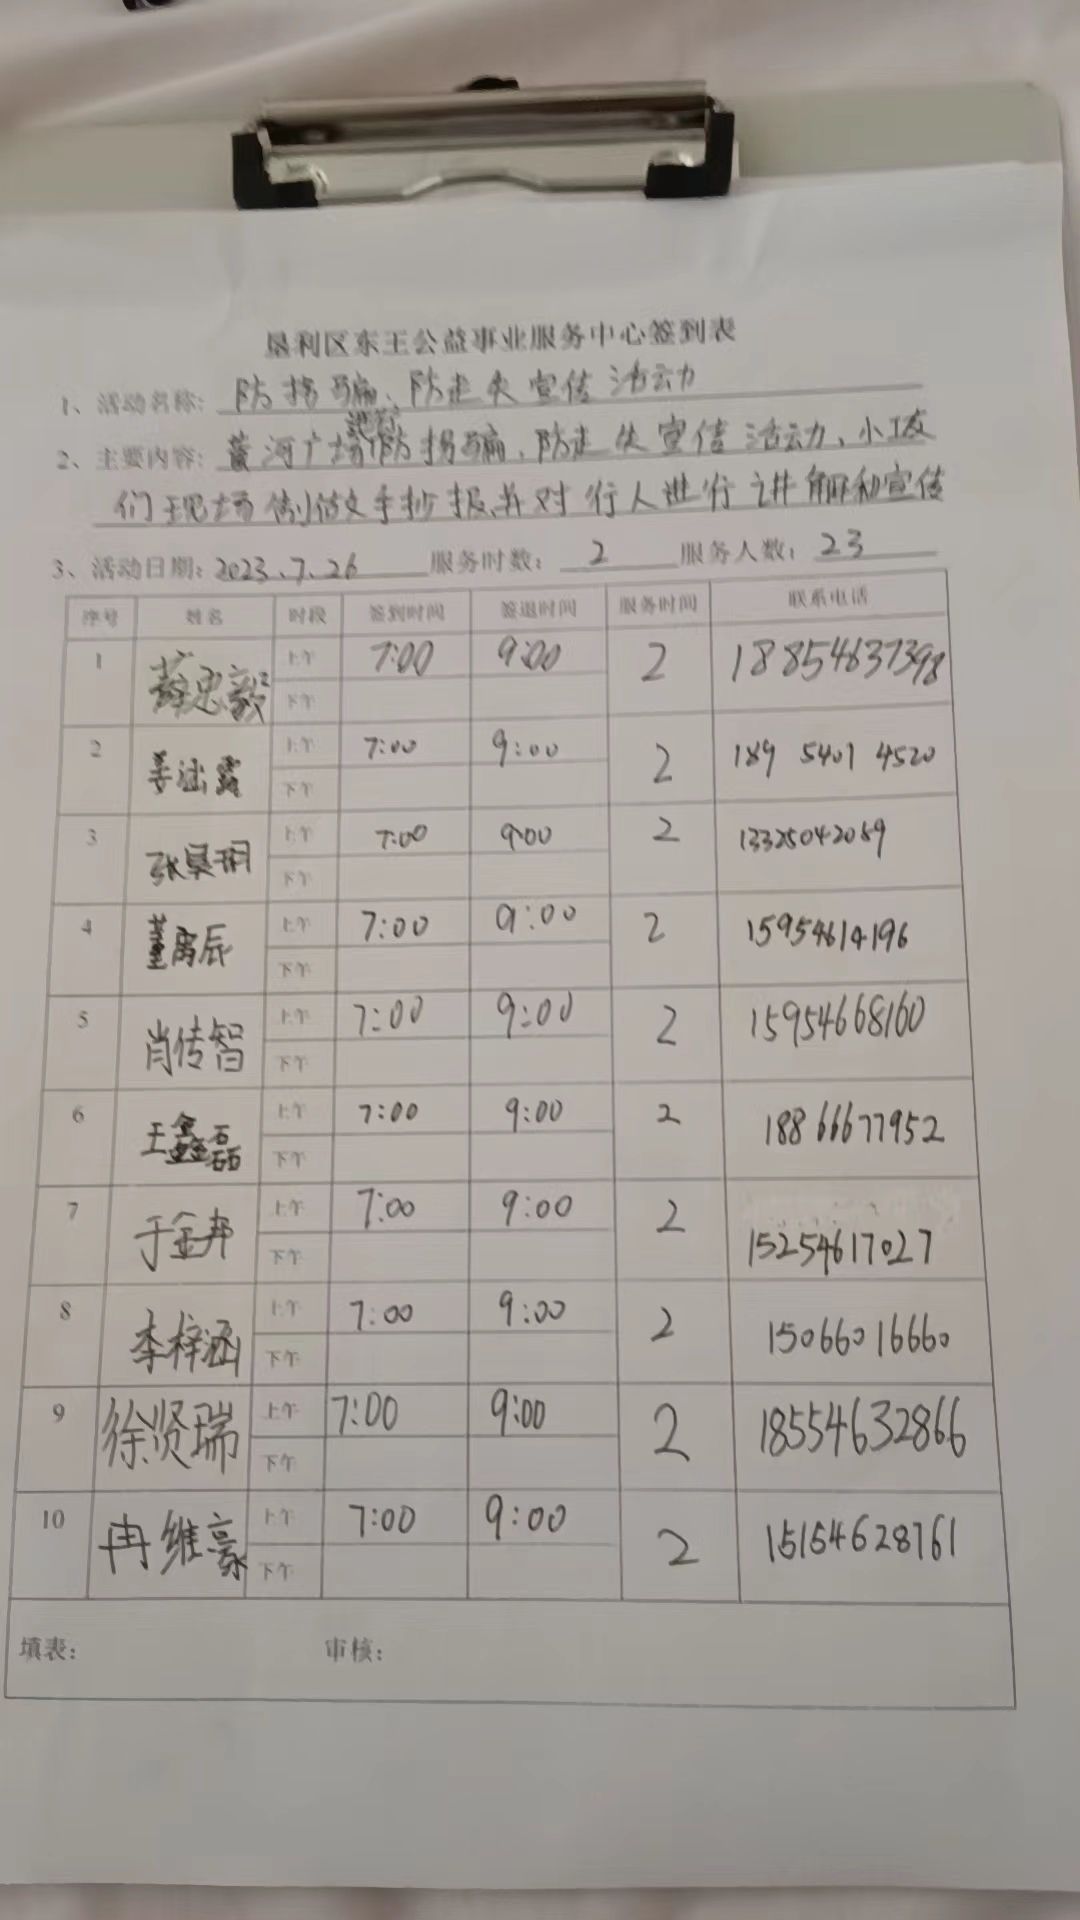 垦利区东王公益事业服务中心签到表
1、活动名称: 防拐骗、防走失宣传活动
2、主要内容: 黄河广场进行防拐骗、防走失宣传活动、小朋友
们现场制做手抄报并对行人进行讲解和宣传
3、活动日期: 2023.7.26 服务时数: 2 服务人数: 23
序号 姓名 时段 签到时间 签退时间 服务时间 联系电话
1 薛忠毅 上午 7:00 9:00 2 18854637398
下午
2 姜 上午 7:00 9:00 2 189 5401 4520
下午
3 张昊玥 上午 7:00 9:00 2 13325042089
下午
4 董禹辰 上午 7:00 9:00 2 15954614196
下午
5 肖传智 上午 7:00 9:00 2 15954668160
下午
6 王鑫磊 上午 7:00 9:00 2 18866677952
下午
7 于金邦 上午 7:00 9:00 2 15254617027
下午
8 李梓涵 上午 7:00 9:00 2 15066016660
下午
9 徐贤瑞 上午 7:00 9:00 2 18554632866
下午
10 冉维豪 上午 7:00 9:00 2 15154628761
下午
填表: 审核: